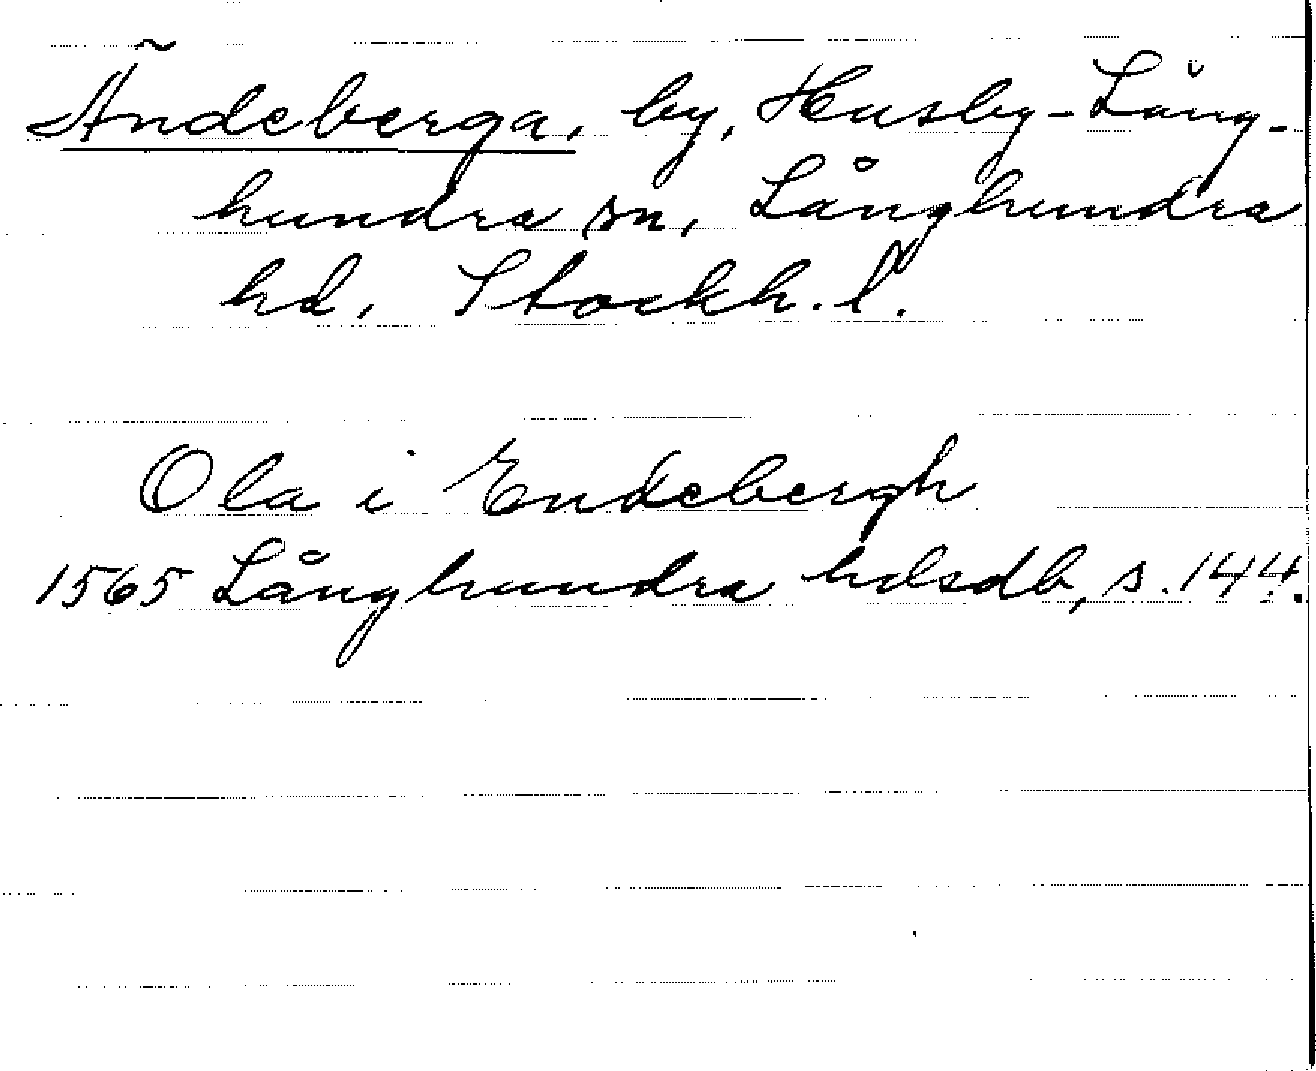 Ändeberga, by, Husby-Lång-
hundra sn, Långhundra
hd, Stockh. l.
Ola i Endebergh
1565 Långhundra hdsdb, s. 144.